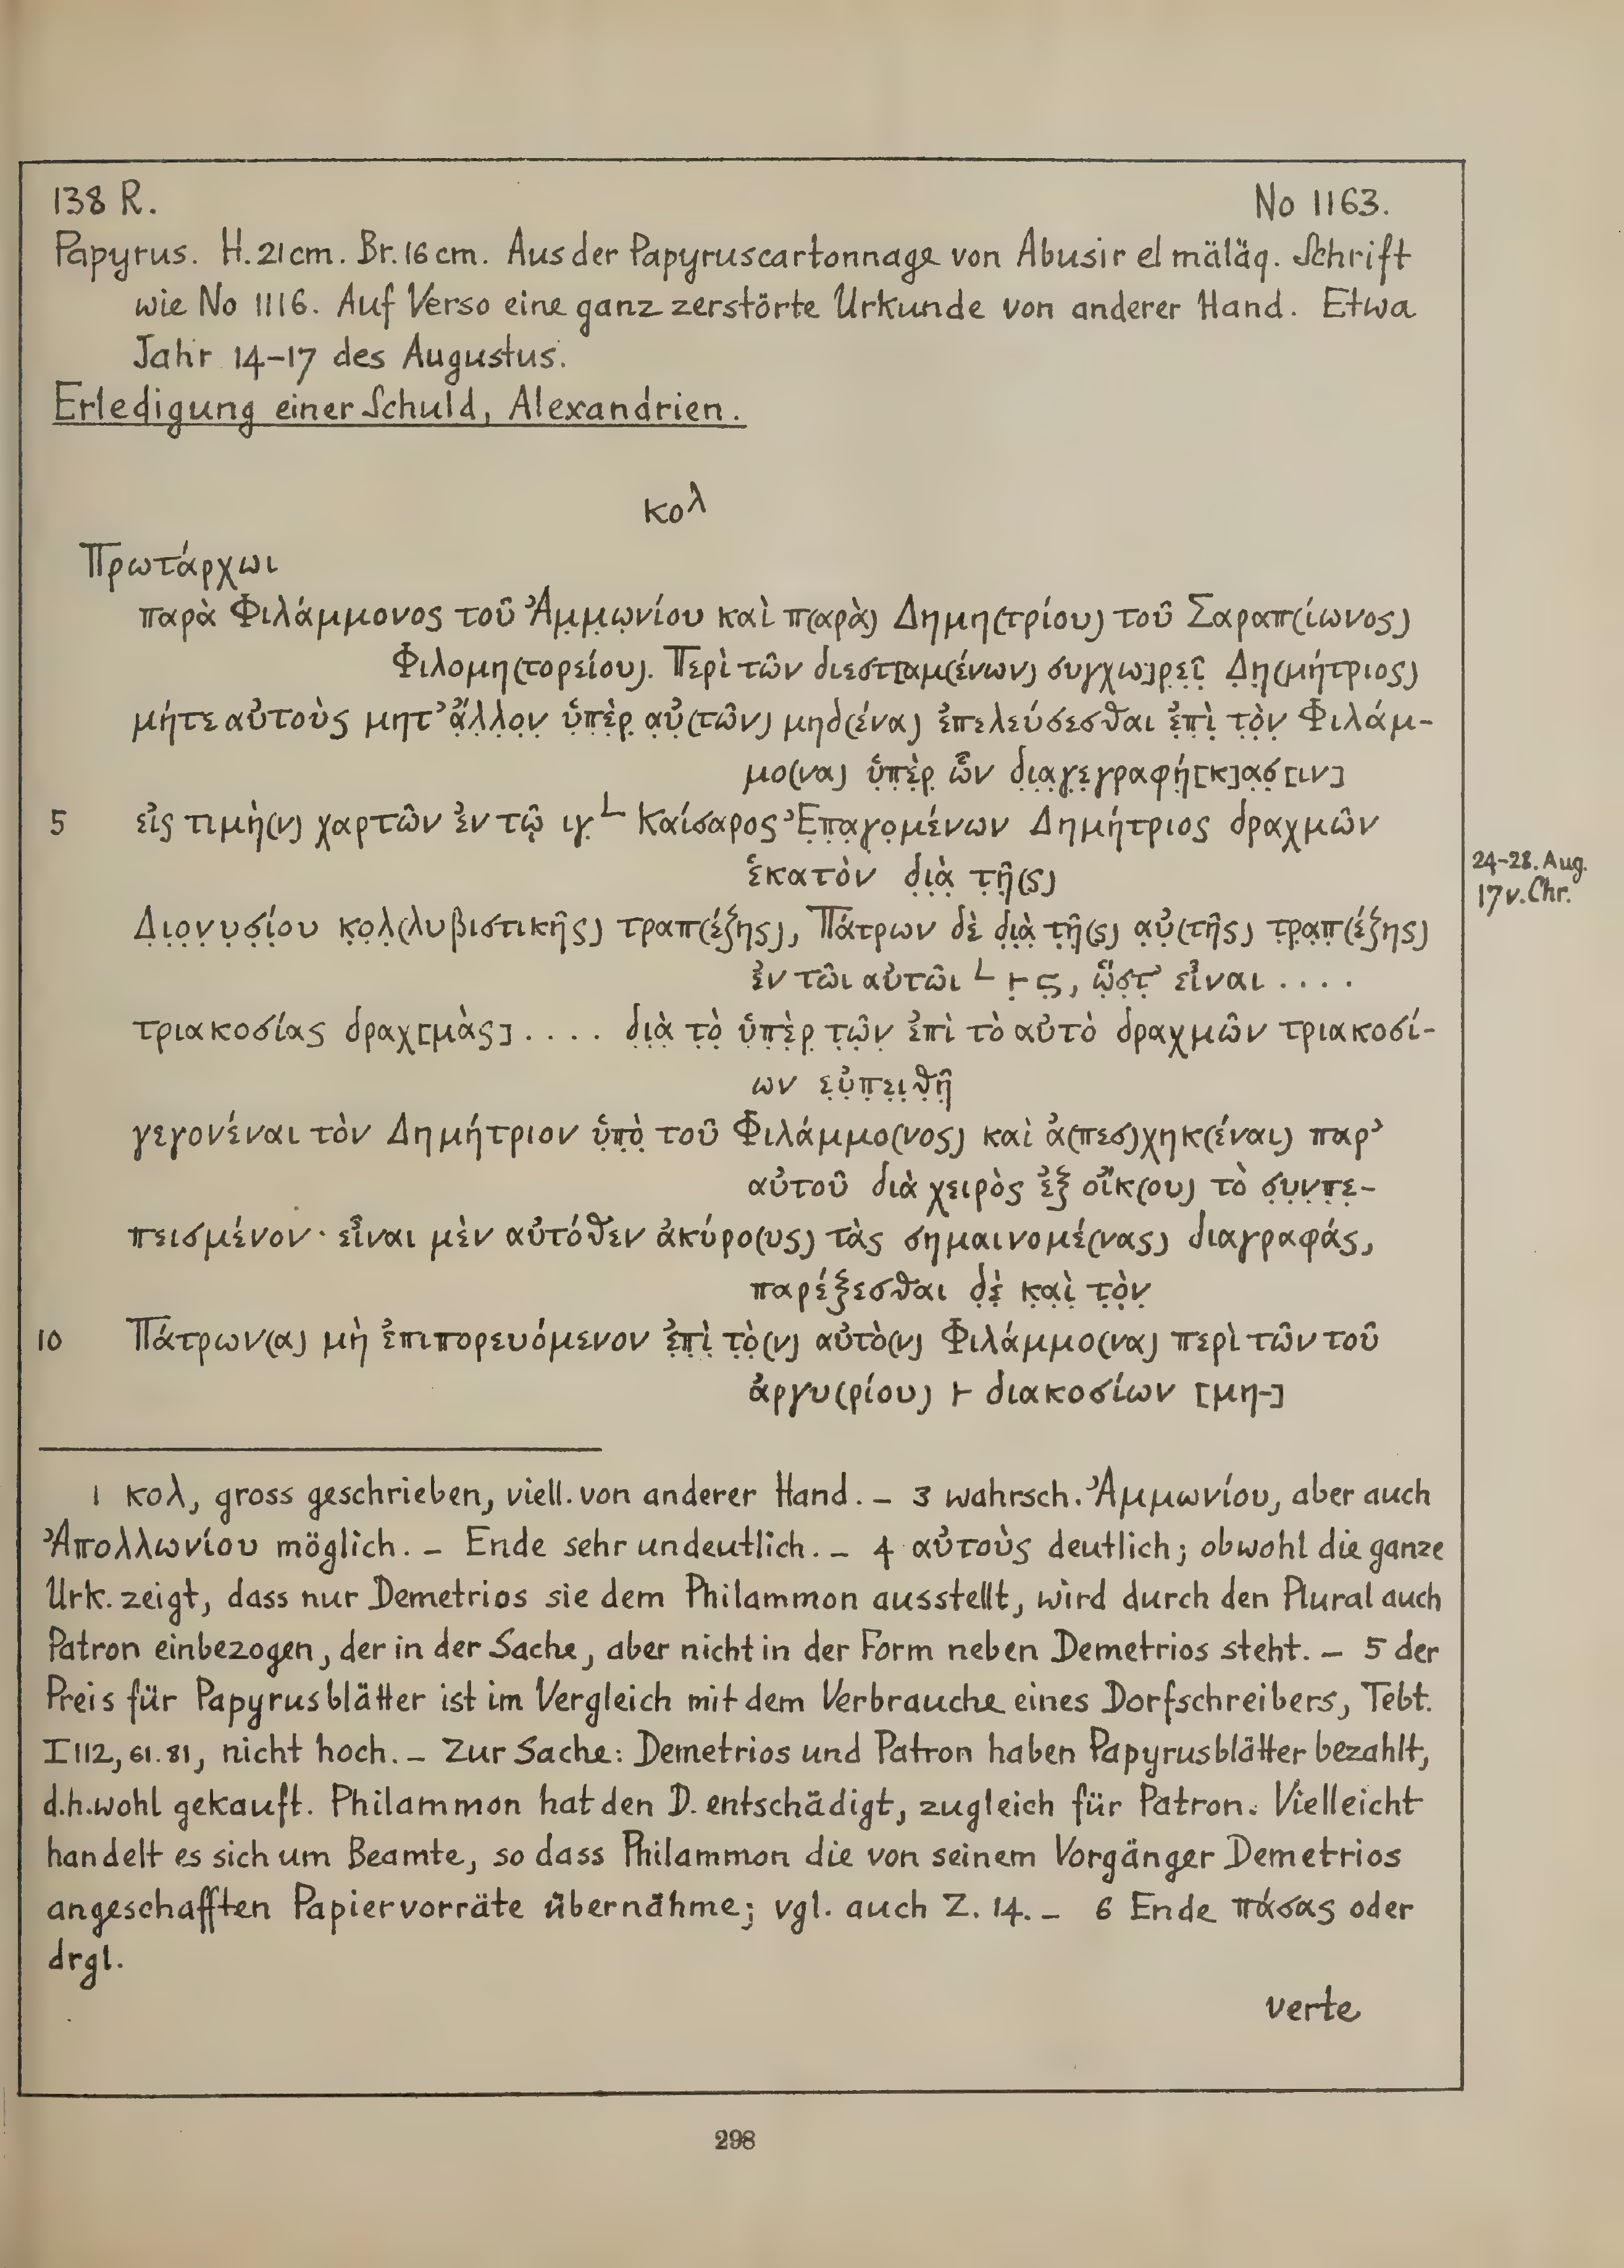 138 R. No 1163.
Papyrus. H. 21 cm. Br. 16 cm. Aus der Papyruscartonnage von Abusir el mäläq. Schrift
wie No 1116. Auf Verso eine ganz zerstörte Urkunde von anderer Hand. Etwa
Jahr 14-17 des Augustus.
Erledigung einer Schuld, Alexandrien.
κολ
Πρωτάρχωι
παρὰ Φιλάμμονος τοῦ Ἀμ̣μ̣ω̣νίου καὶ π(αρὰ) Δημη(τρίου) τοῦ Σαραπ(ίωνος)
Φιλομη(τορείου). Περὶ τῶν διεστ[αμ(ένων) συγχω]ρ̣ε̣ῖ̣ Δ̣η̣(μήτριος)
μήτε αὐτοὺς μητ’ ἄ̣λ̣λ̣ο̣ν̣ ὑ̣π̣ὲ̣ρ̣ α̣ὐ̣(τῶν) μηδ(ένα) ἐπελεύσεσθαι ἐ̣π̣ὶ̣ τ̣ὸ̣ν̣ Φιλάμ-
μο(να) ὑ̣π̣ὲ̣ρ̣ ὧν δ̣ι̣α̣γ̣ε̣γραφή̣[κ]α̣σ̣[ιν]
5 εἰς τιμὴ(ν) χαρτῶν ἐν τῷ ιγ̣ └ Καίσαρος Ἐ̣π̣α̣γ̣ο̣μένων Δημήτριος δραχμῶν
ἑκατὸν δ̣ι̣ὰ̣ τ̣ῆ̣(ς)
24-28. Aug.
17 v. Chr.
Δ̣ι̣ο̣ν̣υ̣σ̣ί̣ου κ̣ο̣λ̣(λυβιστικῆς) τραπ(έζης), Πάτρων δὲ δ̣ι̣ὰ̣ τ̣ῆ̣(ς) α̣ὐ̣(τῆς) τ̣ρ̣α̣π̣(έζης)
ἐν τῶι αὐτῶι └ ⊦̣ ϛ̣, ὥ̣σ̣τ̣’ εἶναι ....
τριακοσίας δραχ[μὰς] .... δ̣ι̣ὰ̣ τ̣ὸ̣ ὑ̣π̣ὲ̣ρ̣ τ̣ῶ̣ν̣ ἐπὶ τὸ αὐτὸ δραχμῶν τριακοσί-
ων ε̣ὐ̣π̣ε̣ι̣θ̣ῆ̣
γεγονέναι τὸν Δημήτριον ὑ̣π̣ὸ̣ τοῦ Φιλάμμο(νος) καὶ ἀ(πεσ)χηκ(έναι) παρ’
αὐτοῦ διὰ χειρὸς ἐ̣ξ̣ οἴκ(ου) τὸ σ̣υ̣ν̣π̣ε̣-
πεισμένον· εἶναι μὲν αὐτόθεν ἀκύρο(υς) τὰς σημαινομέ(νας) διαγραφάς,
παρέξεσθαι δ̣ὲ̣ κ̣α̣ὶ̣ τ̣ὸ̣ν̣
10 Πάτρων(α) μὴ ἐπιπορευόμενον ἐ̣π̣ὶ̣ τ̣ὸ̣(ν) αὐτὸ(ν) Φιλάμμο(να) περὶ τῶν τοῦ
ἀργυ(ρίου) ⊦ διακοσίων [μη-]
1 κολ, gross geschrieben, viell. von anderer Hand. – 3 wahrsch. Ἀμμωνίου, aber auch
Ἀπολλωνίου möglich. – Ende sehr undeutlich. – 4 αὐτοὺς deutlich; obwohl die ganze
Urk. zeigt, dass nur Demetrios sie dem Philammon ausstellt, wird durch den Plural auch
Patron einbezogen, der in der Sache, aber nicht in der Form neben Demetrios steht. – 5 der
Preis für Papyrusblätter ist im Vergleich mit dem Verbrauche eines Dorfschreibers, Tebt.
I 112, 61. 81, nicht hoch. – Zur Sache: Demetrios und Patron haben Papyrusblätter bezahlt,
d.h. wohl gekauft. Philammon hat den D. entschädigt, zugleich für Patron. Vielleicht
handelt es sich um Beamte, so dass Philammon die von seinem Vorgänger Demetrios
angeschafften Papiervorräte übernähme; vgl. auch Z. 14. – 6 Ende πάσας oder
drgl.
verte
298